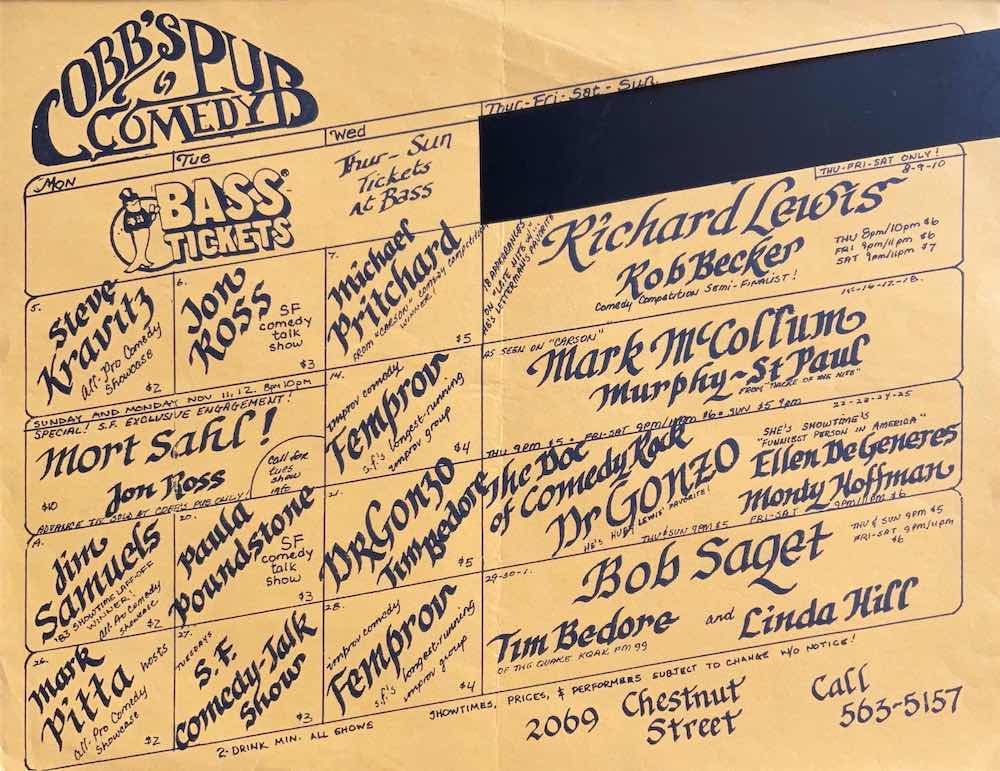 COBB'S PUB
COMEDY
Mon
Tue
Wed
Thur-Fri-Sat-Sun
BASS
TICKETS
Thur-Sun
Tickets
At Bass
THU-FRI-SAT ONLY!
8-9-10
5.
Steve
Kravitz
All-Pro Comedy
Showcase
$2
6.
Jon
Ross
SF
comedy
talk
show
$3
7.
Michael
Pritchard
FROM "CARSON" COMEDY COMPETITION
WINNER!
$5
18 APPEARANCES
ON "LATE NITE W/"
HE'S LETTERMAN'S FAVORITE
Richard Lewis
Rob Becker
Comedy Competition Semi-Finalist!
THU 8pm/10pm $6
FRI 9pm/11pm $6
SAT 9pm/11pm $7
SUNDAY AND MONDAY NOV 11, 12. 8pm 10pm
SPECIAL! S.F. EXCLUSIVE ENGAGEMENT!
Mort Sahl!
Jon Ross
$10
Call for
tues
show
info
ADVANCE TIX SOLD AT COBB'S PUB ONLY!
14.
improv comedy
Femprov
s.f.'s longest-running
improv group
$4
15-16-17-18.
AS SEEN ON "CARSON"
Mark McCollum
Murphy-St Paul
THU 9PM $5 - FRI-SAT 9PM/11PM $6 - SUN $5 9pm
19.
Jim
Samuels
'83 SHOWTIME LAFF-OFF
WINNER!
All Pro Comedy
Showcase
$2
20.
Paula
Poundstone
SF
comedy
talk
show
$3
21.
Dr Gonzo
Tim Bedore
$5
22-23-24-25
The Doc
of Comedy Rock
Dr GONZO
HE'S HUEY LEWIS' FAVORITE!
SHE'S SHOWTIME'S
"FUNNIEST PERSON IN AMERICA"
Ellen DeGeneres
Monty Hoffman
THU & SUN 9PM $5
FRI-SAT 9PM/11PM $6
26.
Mark
Pitta
hosts
All-Pro Comedy
Showcase
$2
27.
TUESDAYS
S.F.
Comedy-Talk
Show
$3
28.
improv comedy
Femprov
s.f.'s longest-running
improv group
$4
29-30-1.
Bob Saget
THU & SUN 9PM $5
FRI-SAT 9PM/11PM
$6
Tim Bedore
OF THE QUAKE KQAK FM 99
and
Linda Hill
2-DRINK MIN. ALL SHOWS
SHOWTIMES, PRICES, & PERFORMERS SUBJECT TO CHANGE W/O NOTICE!
2069 Chestnut
Street
Call
563-5157